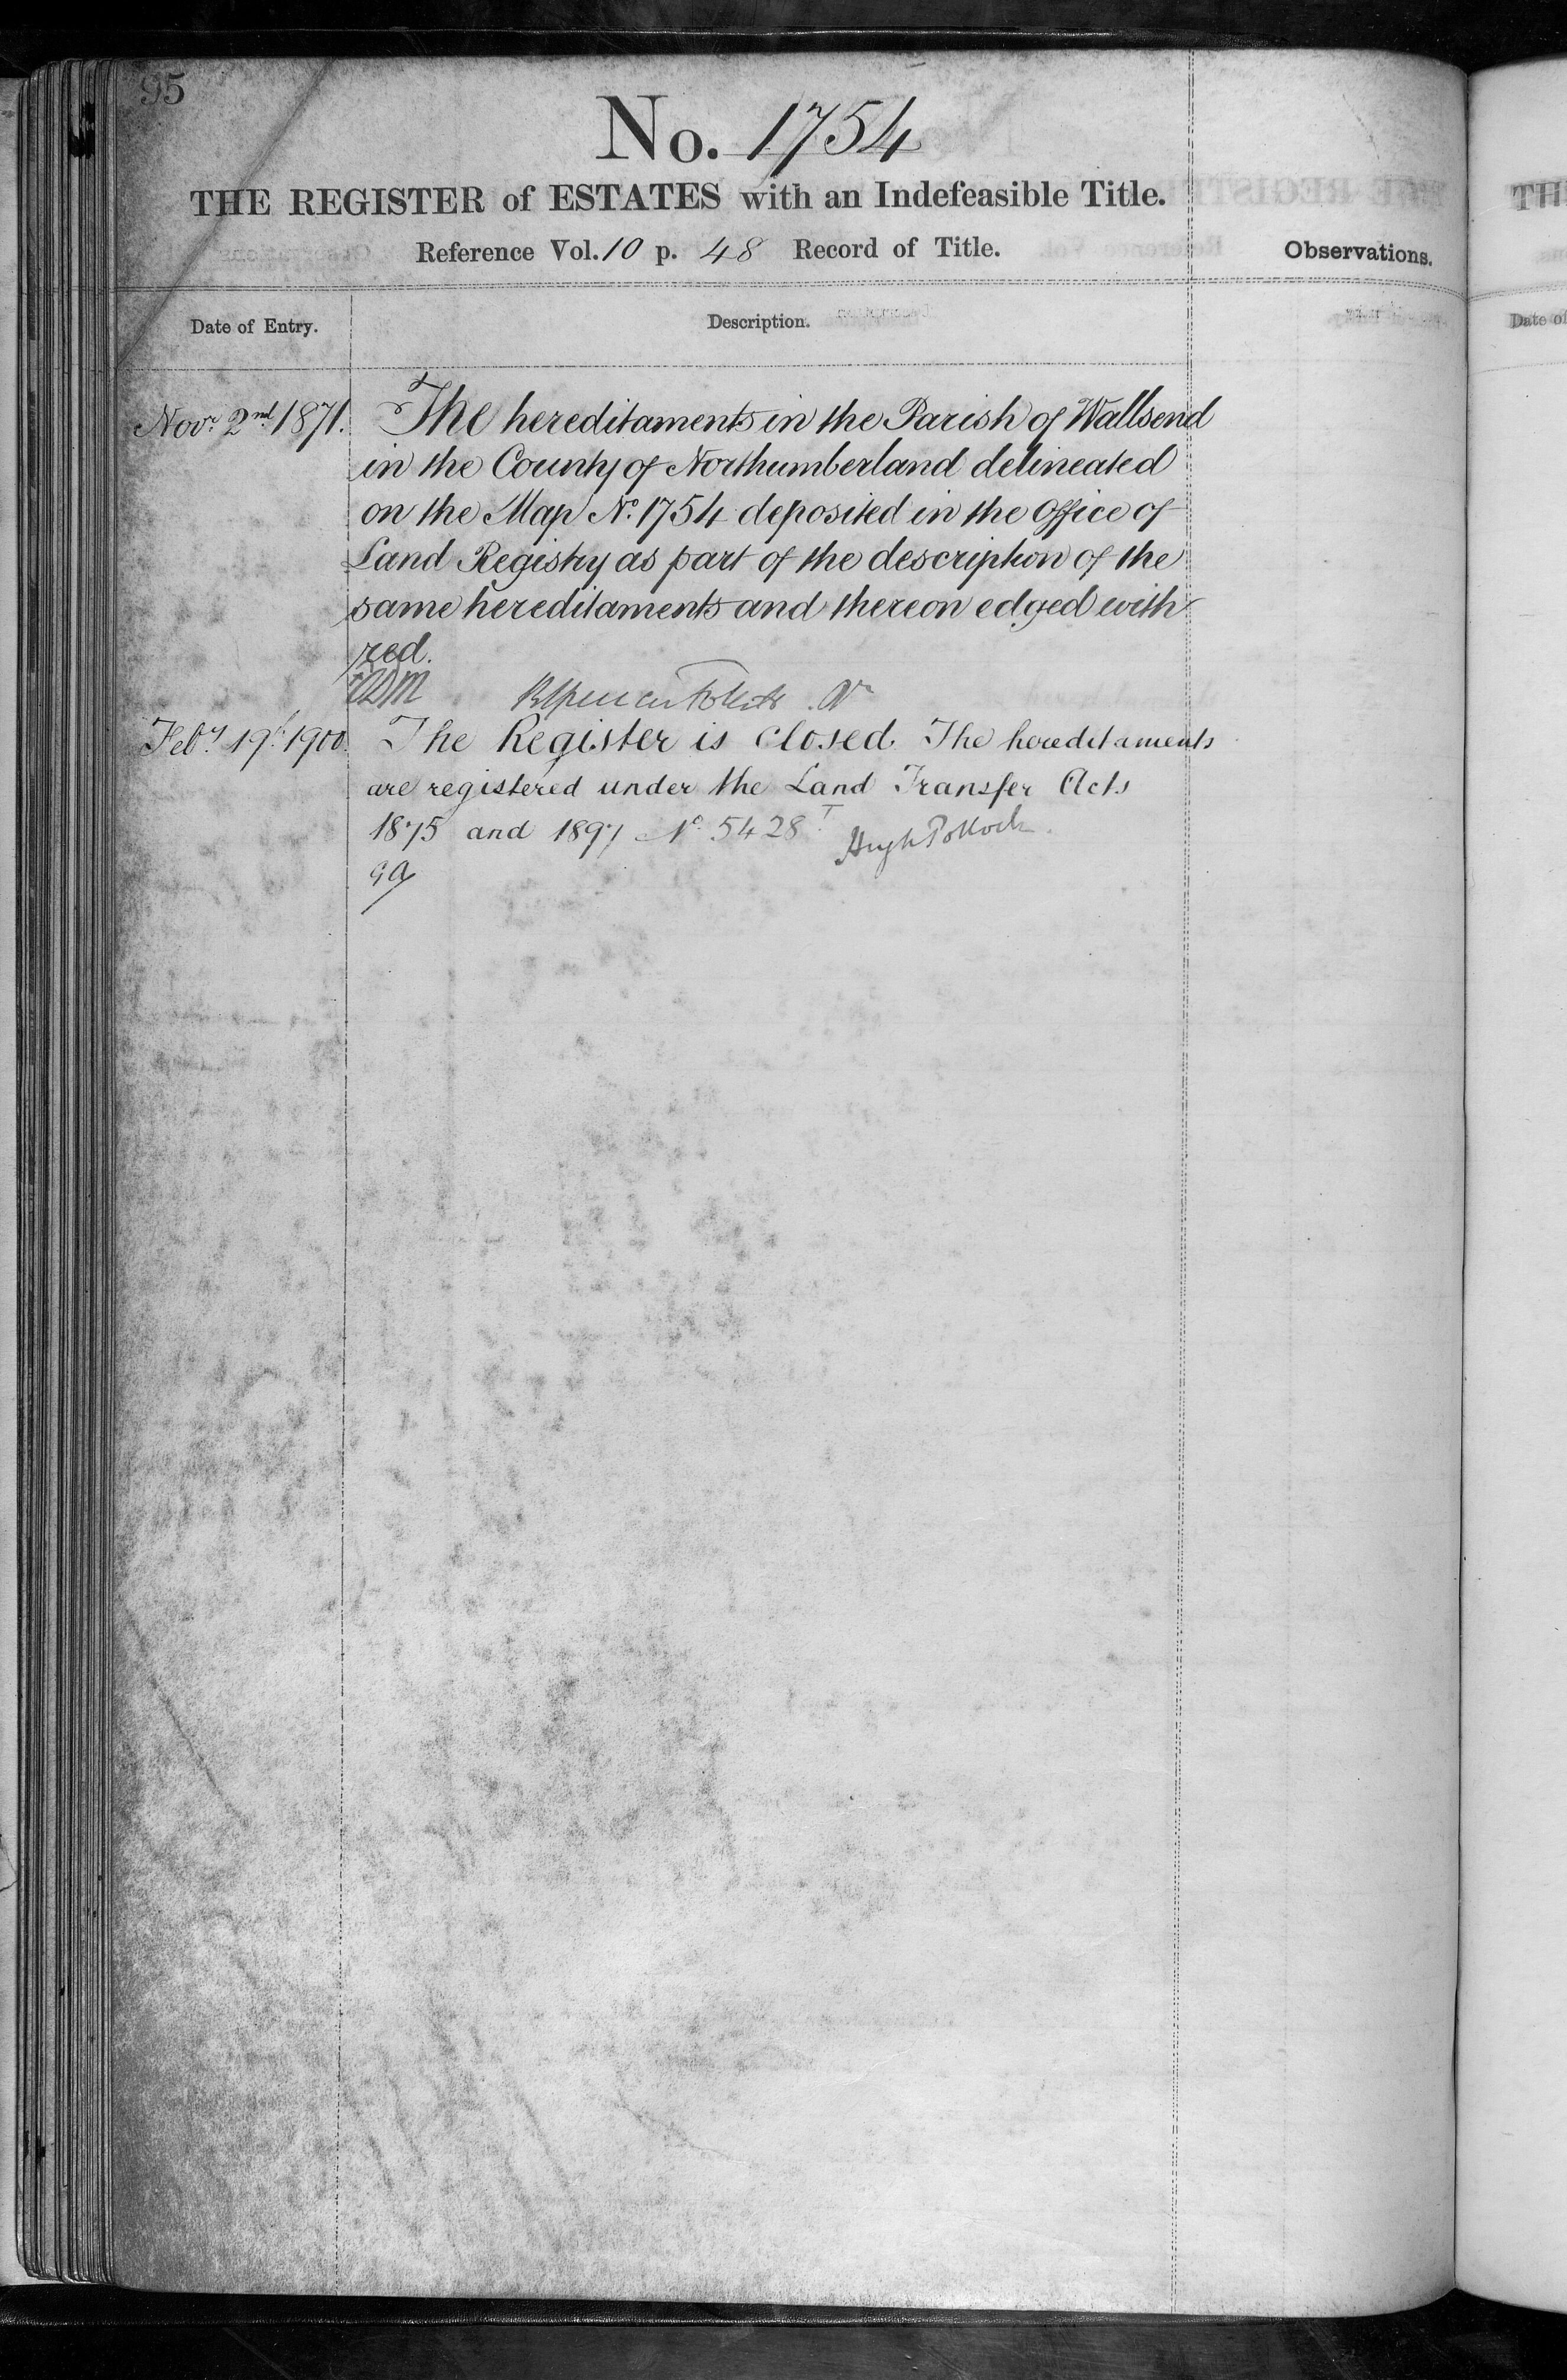 95
No. 1754
THE REGISTER of ESTATES with an Indefeasible Title.
Reference Vol. 10 p. 48 Record of Title.
Observations.
Date of Entry.
Description.
Novr. 2nd 1871. The hereditaments in the Parish of Wallsend
in the County of Northumberland delineated
on the Map No. 1754 deposited in the Office of
Land Registry as part of the description of the
same hereditaments and thereon edged with
red.
Feby. 19th 1900. The Register is closed. The hereditaments
are registered under the Land Transfer Acts
1875 and 1897 No. 5428
Hugh Pollock.